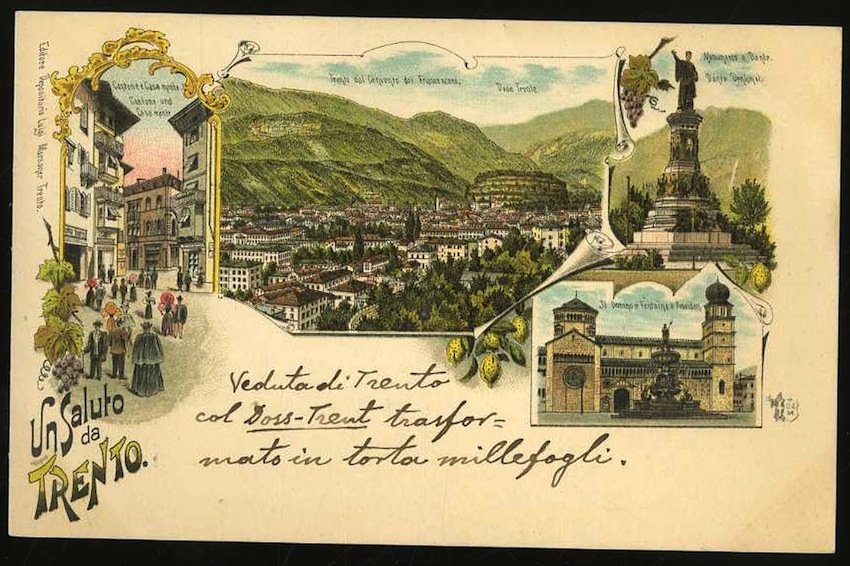 Editore Depositario Luigi Marsoner Trento.
Cantone e Casa monte
Cantone und
Casa monte
Trento dal Convento dei Francescani.
Doss Trento.
Monumento a Dante.
Dante Denkmal.
Il Duomo e Fontaine
Veduta di Trento
col Doss-Trent trasfor=
mato in torta millefogli.
Un Saluto
da
TRENTO.